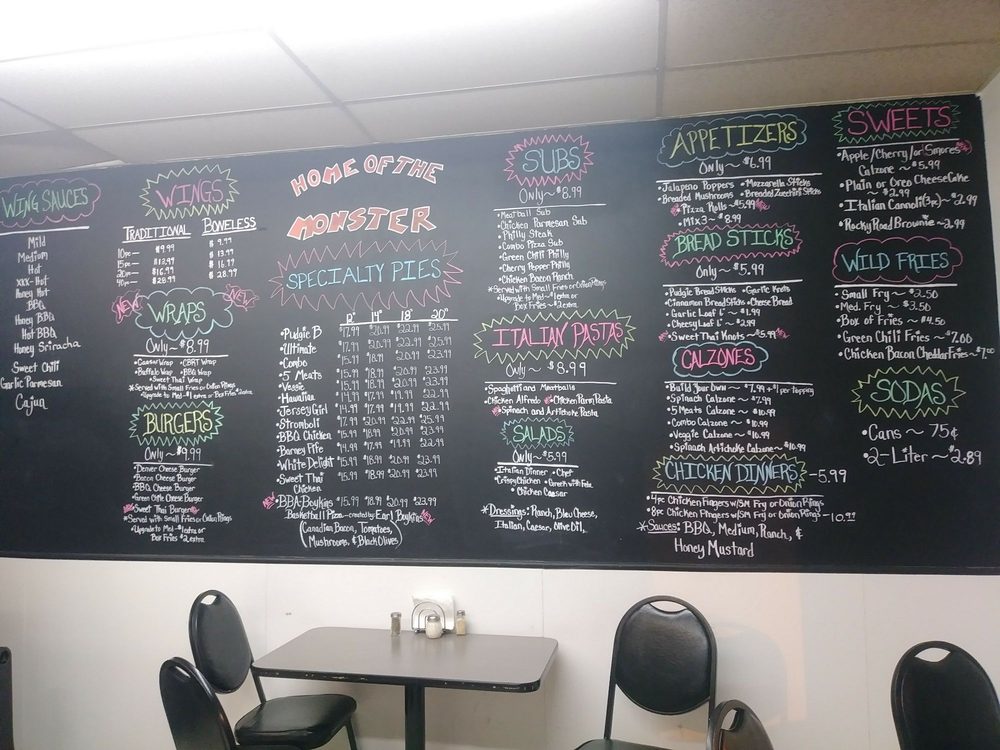 WING SAUCES
Mild
Medium
Hot
XXX-Hot
Honey Hot
BBQ
Honey BBQ
Hot BBQ
Honey Sriracha
Sweet Chili
Garlic Parmesan
Cajun
WINGS
TRADITIONAL BONELESS
$9.99 $9.99
10pc — $12.99 $13.99
15pc — $16.99 $16.99
20pc — $28.99
NEW NEW
WRAPS
Only ~ $8.99
•Caesar Wrap •CBRT Wrap
•Buffalo Wrap •BBQ Wrap
•Sweet Thai Wrap
*Served with Small Fries or Onion Rings
BURGERS
Only ~ $9.99
•Denver Cheese Burger
•Bacon Cheese Burger
•BBQ Cheese Burger
•Green Chile Cheese Burger
•Sweet Thai Burger
*Served with Small Fries or Onion Rings
•Upgrade to Med ~ $1 extra or
Box Fries $2 extra
HOME OF THE
MONSTER
SPECIALTY PIES
12" 14" 18" 20"
•Pudgie B $17.99 $20.99 $22.99 $25.99
•Ultimate $17.99 $20.99 $22.99 $25.99
•Combo $15.99 $18.99 $20.99 $23.99
•5 Meats $15.99 $18.99 $20.99 $23.99
•Veggie
•Hawaiian
•Jersey Girl
•Stromboli
•BBQ Chicken
•Barney Fife
•White Delight $15.99 $18.99 $20.99 $23.99
•Sweet Thai $15.99 $18.99 $20.99 $23.99
Chicken
NEW •BBA-Boykins $15.99 $18.99 $20.99 $23.99
Basketball Pizza — created by Earl Boykins NEW
(Canadian Bacon, Tomatoes,
Mushrooms, & Black Olives)
SUBS
Only ~ $8.99
•Meatball Sub
•Chicken Parmesan Sub
•Philly Steak
•Combo Pizza Sub
•Green Chili Philly
•Cherry Pepper Philly
•Chicken Bacon Ranch
*Served with Small Fries or Onion Rings
•Upgrade to Med ~ $1 extra or
Box Fries ~ $2 extra
ITALIAN PASTAS
Only ~ $8.99
•Spaghetti and Meatballs
•Chicken Alfredo •Chicken Parm Pasta
•Spinach and Artichoke Pasta
SALADS
Only ~ $5.99
•Italian Dinner •Chef
•Crispy Chicken
•Chicken Caesar
*Dressings: Ranch, Bleu Cheese,
Italian, Caesar, Olive Oil,
APPETIZERS
Only ~ $6.99
•Jalapeno Poppers •Mozzarella Sticks
•Breaded Mushrooms •Breaded Zucchini Sticks
•Pizza Rolls ~ $5.99
•Mix 3 ~ $8.99
BREAD STICKS
Only ~ $5.99
•Pudgie Bread Sticks •Garlic Knots
•Cinnamon Bread Sticks •Cheese Bread
•Garlic Loaf 6" ~ $1.99
•Cheesy Loaf 6" ~ $2.99
•Sweet Thai Knots ~ $5.99
CALZONES
•Build Your Own ~ $7.99 + $1 per Topping
•Spinach Calzone ~ $7.99
•5 Meats Calzone ~ $10.99
•Combo Calzone ~ $10.99
•Veggie Calzone ~ $10.99
•Spinach Artichoke Calzone ~ $10.99
CHICKEN DINNERS — 5.99
•4pc Chicken Fingers w/SM Fry or Onion Rings
•8pc Chicken Fingers w/SM Fry or Onion Rings — 10.99
*Sauces: BBQ, Medium, Ranch, &
Honey Mustard
SWEETS
•Apple/Cherry/or Smores
Calzone ~ $5.99
•Plain or Oreo CheeseCake
~ $2.99
•Italian Cannoli (3pc) ~ $2.99
•Rocky Road Brownie ~ 2.99
WILD FRIES
•Small Fry ~ $2.50
•Med. Fry ~ $3.50
•Box of Fries ~ $4.50
•Green Chili Fries ~ $7.00
•Chicken Bacon Cheddar Fries ~ $7.00
SODAS
•Cans ~ 75¢
•2-Liter ~ $2.89